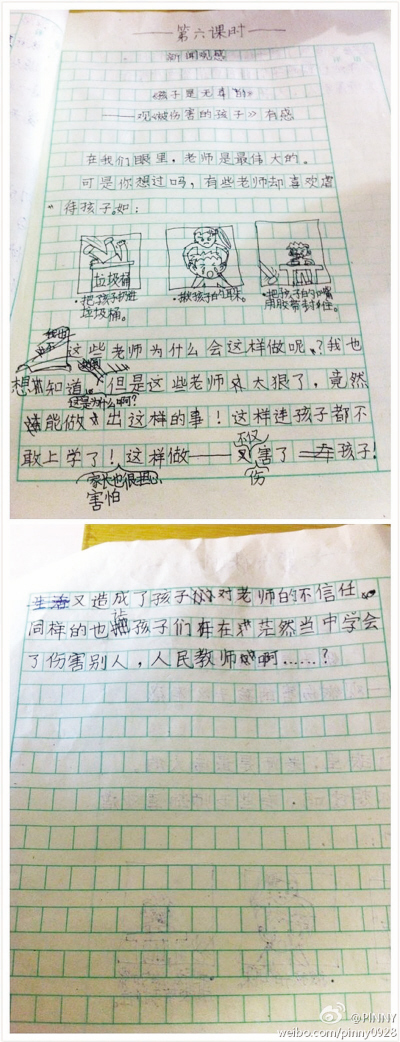 第六课时
新闻观感
《孩子是无辜的》
——观《被伤害的孩子》有感
在我们眼里，老师是最伟大的。
可是你想过吗，有些老师却喜欢虐
待孩子。如：
垃圾桶
·把孩子扔进垃圾桶。
·揪孩子的耳朵。
·把孩子的嘴用胶带封住。
这些老师为什么会这样做呢？我也
想知道
这是为什么啊？
但是这些老师太狠了，竟然
能做出这样的事！这样连孩子都不
敢上学了！这样做——不仅伤害了孩子！
家长也很担心
害怕
又造成了孩子对老师的不信任。
同样的也让孩子们在茫然当中学会
了伤害别人，人民教师啊……？
@PINNY
weibo.com/pinny0928